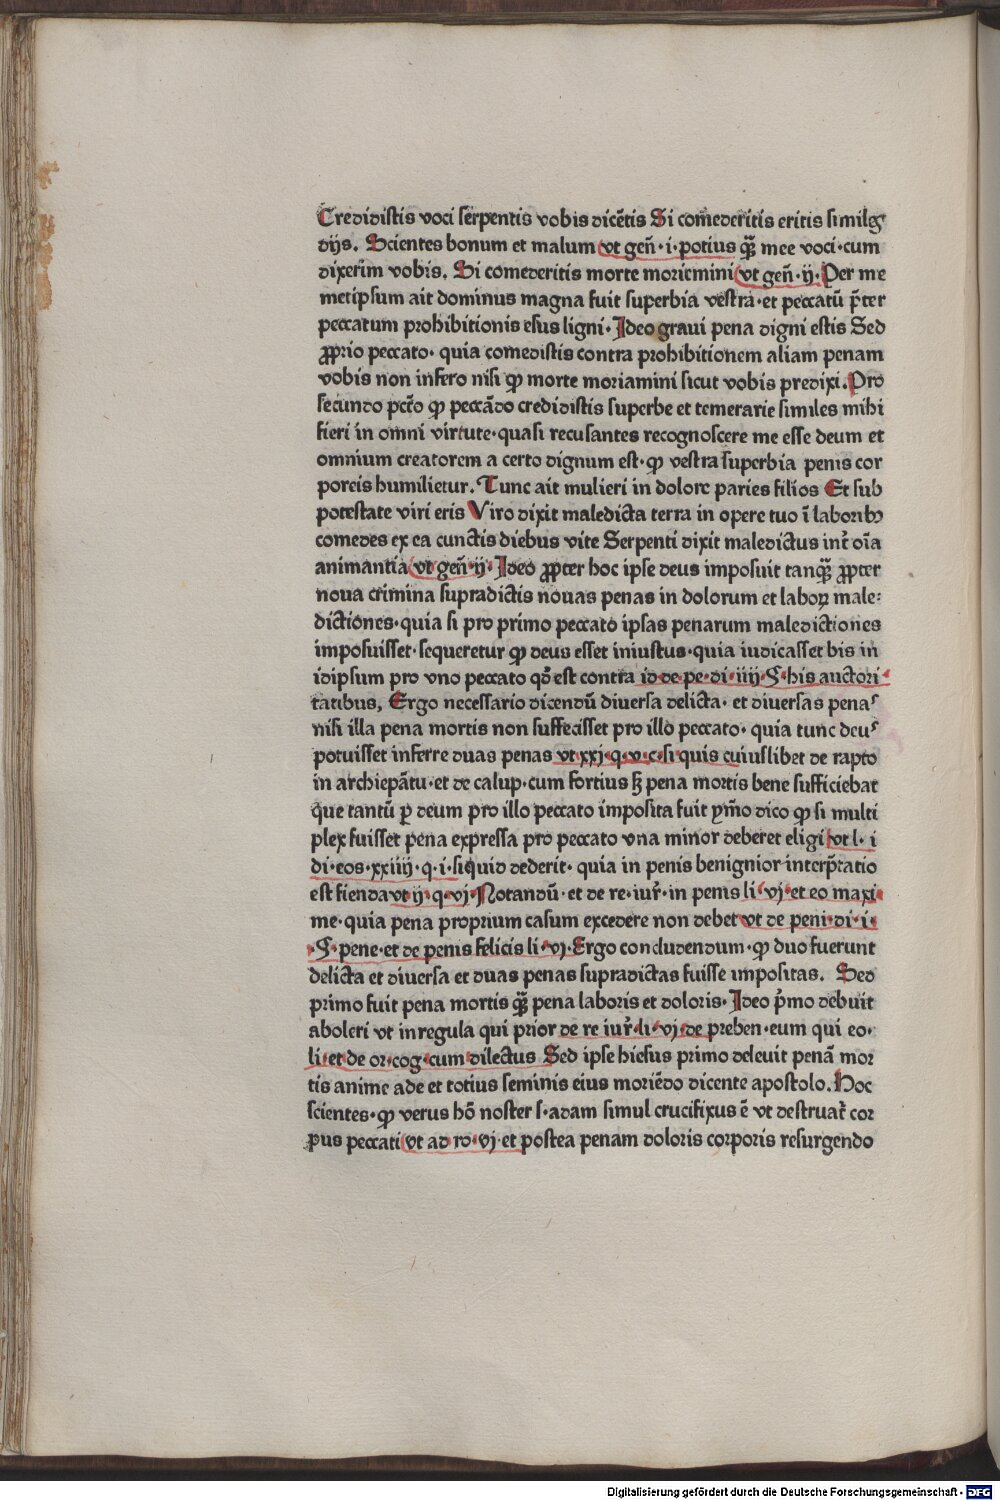 Credidistis voci serpentis vobis dicẽtis Si comederitis eritis similes
dijs. Scientes bonum et malum vt geñ·i·potius q̃ȝ mee voci·cum
dixerim vobis. Si comederitis morte moriemini vt geñ·ij·Per me
metipsum ait dominus magna fuit superbia vestra·et peccatũ p̃ter
peccatum prohibitionis esus ligni·Ideo graui pena digni estis Sed
ꝓprio peccato·quia comedistis contra prohibitionem aliam penam
vobis non infero nisi ꝙ morte moriamini sicut vobis predixi.Pro
secundo pctõ ꝙ peccãdo credidistis superbe et temerarie similes mihi
fieri in omni virtute·quasi recusantes recognoscere me esse deum et
omnium creatorem a certo dignum est·ꝙ vestra superbia penis cor
poreis humilietur. Tunc ait mulieri in dolore paries filios Et sub
potestate viri eris Viro dixit maledicta terra in opere tuo ĩ laboribꝯ
comedes ex ea cunctis diebus vite Serpenti dixit maledictus int̃ oĩa
animantia vt geñ·ij·Ideo ꝓpter hoc ipse deus imposuit tanq̃ȝ ꝓpter
noua crimina supradictis nouas penas in dolorum et laboꝝ male:
dictiones·quia si pro primo peccato ipsas penarum maledictiones
imposuisset·sequeretur ꝙ deus esset iniustus·quia iudicasset bis in
idipsum pro vno peccato qd̓ est contra id·de·pe·di·iiij·§·his auctori
tatibus, Ergo necessario dicendũ diuersa delicta·et diuersas penas
nisi illa pena mortis non suffecisset pro illo peccato·quia tunc deus
potuisset inferre duas penas vt·xxj·q·v·c·si quis cuiuslibet de rapto
in archiepãtu·et de calup·cum fortius sȝ pena mortis bene sufficiebat
que tantũ ꝑ deum pro illo peccato imposita fuit ymõ dico ꝙ si multi
plex fuisset pena expressa pro peccato vna minor deberet eligi vt l·i
di·eos·xxiiij·q·i·siquid dederit·quia in penis benignior interp̃tatio
est fienda vt ij·q·vj·Notandũ·et de re·iur̃·in penis li·vj·et eo maxi
me·quia pena proprium casum excedere non debet vt de peni·di·i·
·§·pene·et de penis felicis li·vj·Ergo concludendum·ꝙ duo fuerunt
delicta et diuersa et duas penas supradictas fuisse impositas. Sed
primo fuit pena mortis q̃ȝ pena laboris et doloris·Ideo p̃mo debuit
aboleri vt inregula qui prior de re iur̃·li·vj·de preben·eum qui eo·
li·et de or·cog·cum dilectus Sed ipse hiesus primo deleuit penã mor
tis anime ade et totius seminis eius moriẽdo dicente apostolo.Hoc
scientes·ꝙ verus hõ noster s·adam simul crucifixus ẽ vt destruat̃ cor
pus peccati vt ad ro·vj·et postea penam doloris corporis resurgendo
Digitalisierung gefördert durch die Deutsche Forschungsgemeinschaft - DFG